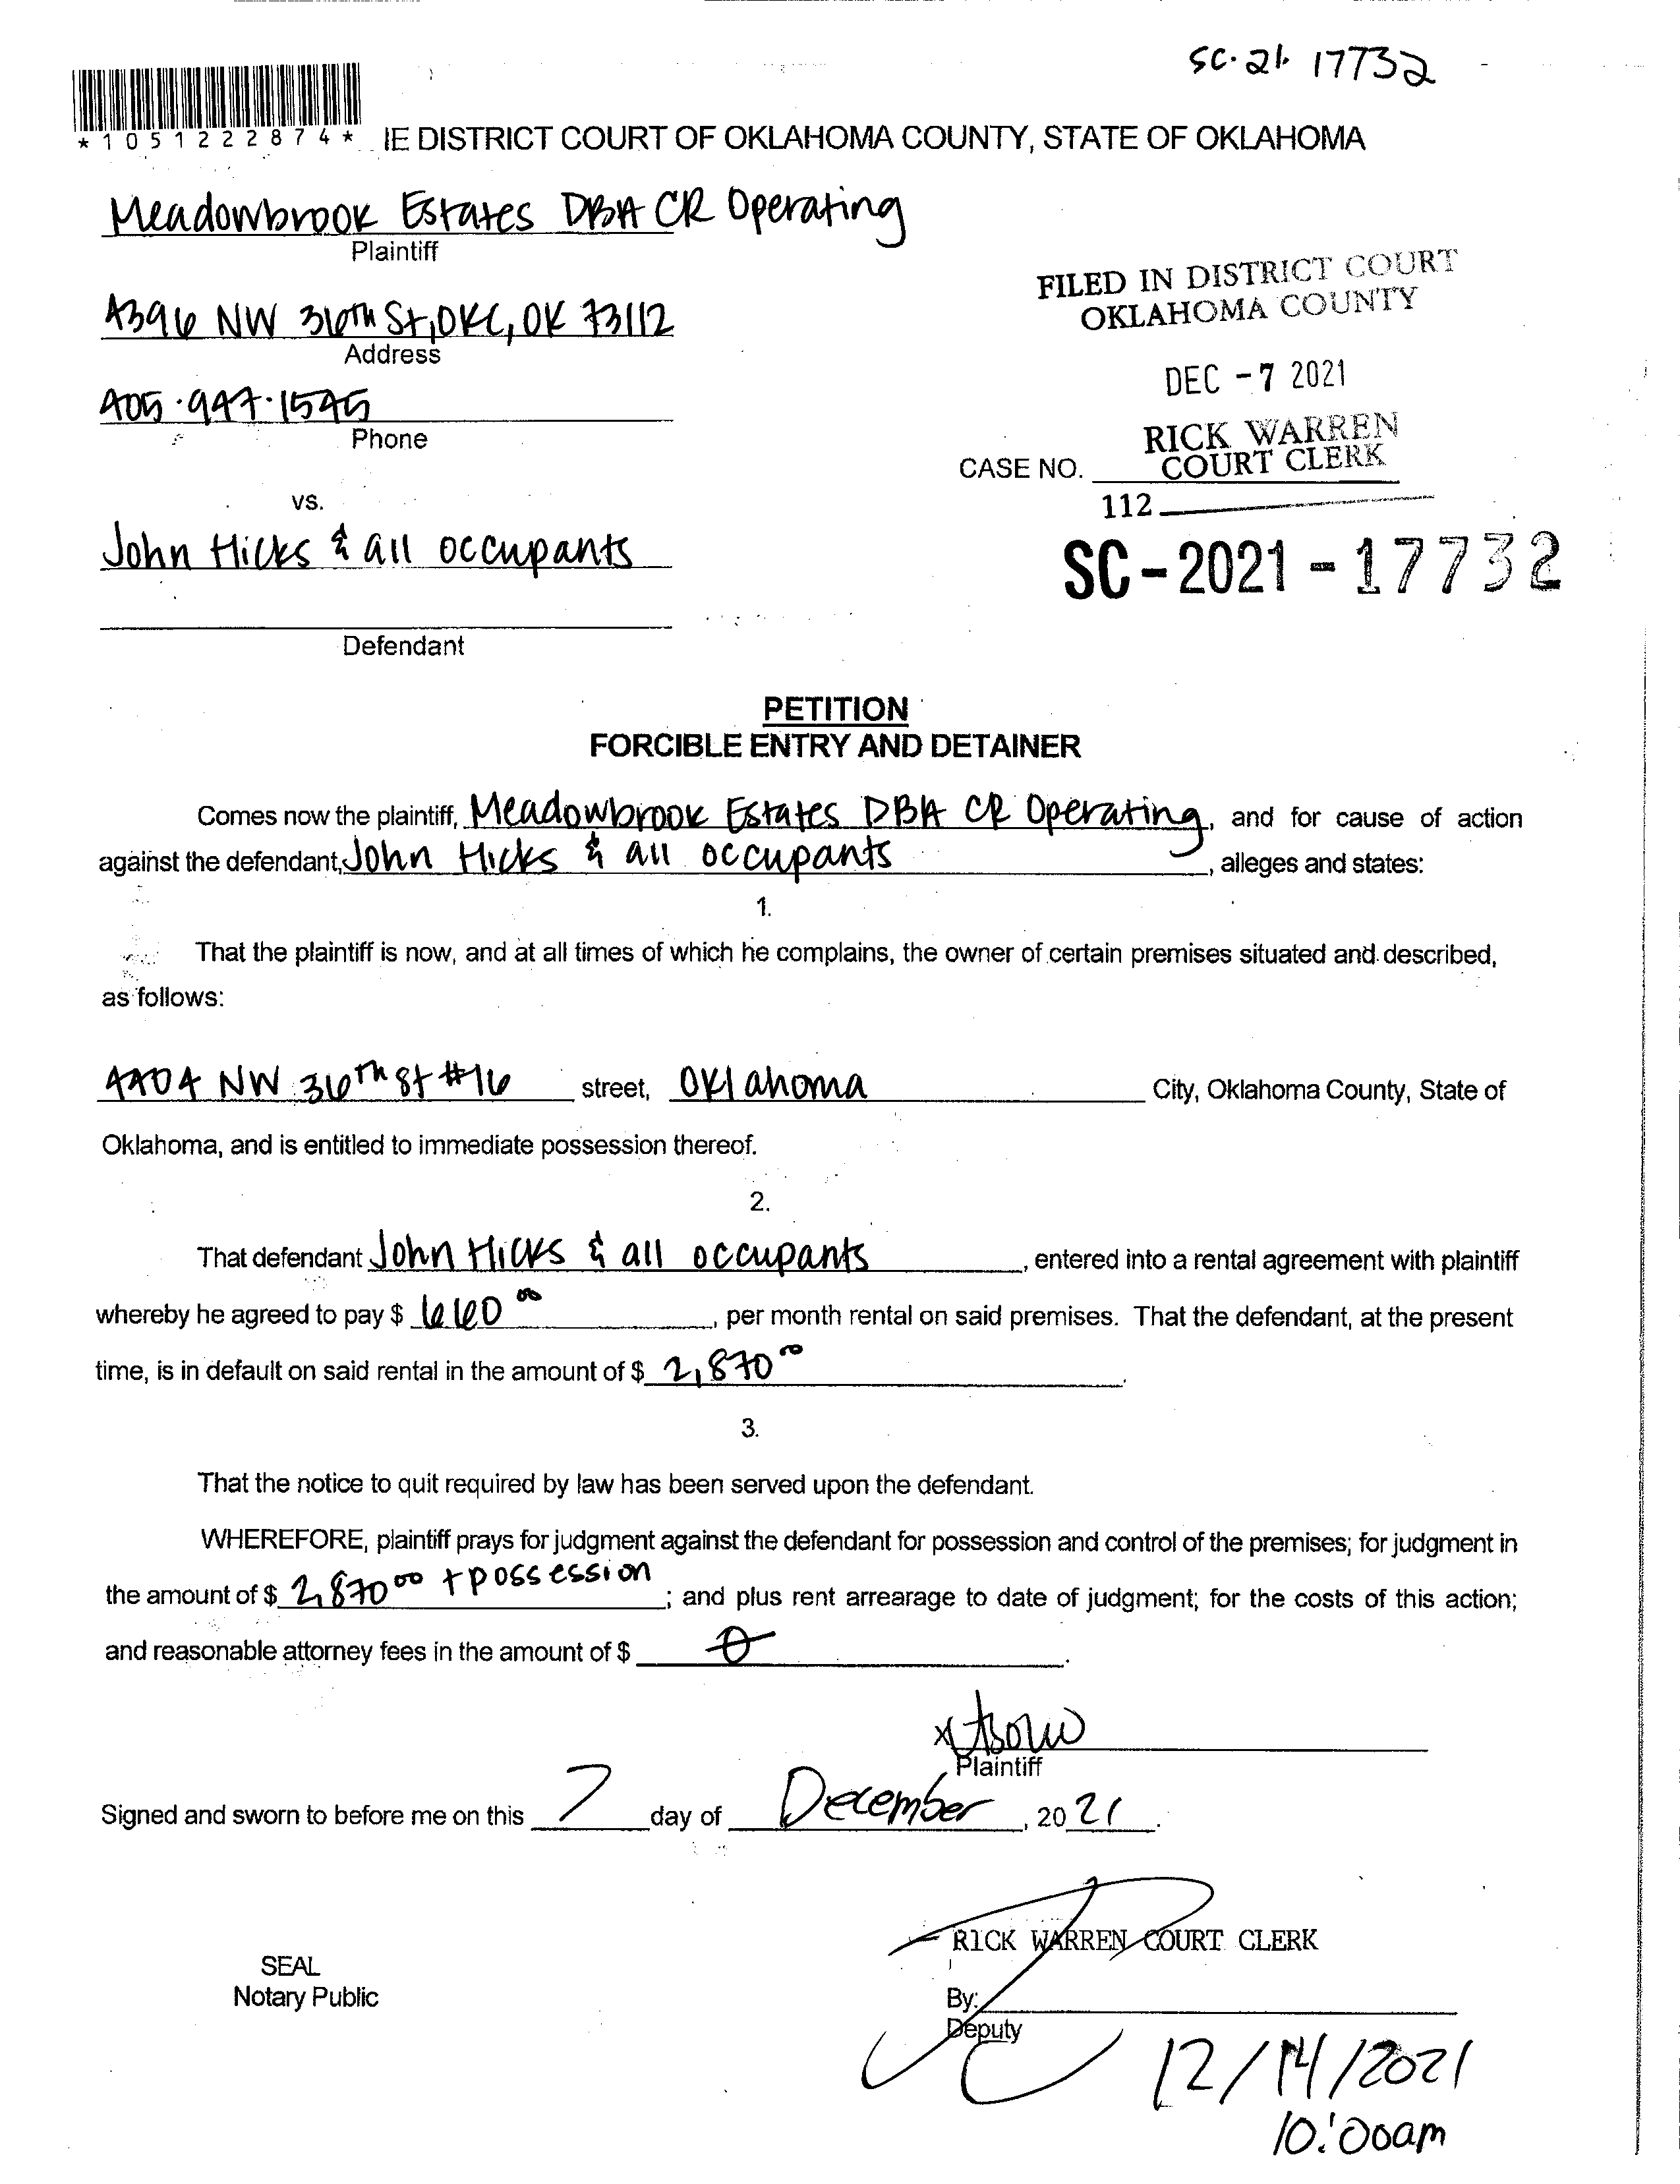 SC-21-17732
*1051222874*
IE DISTRICT COURT OF OKLAHOMA COUNTY, STATE OF OKLAHOMA
Meadowbrook Estates DBA CR Operating
Plaintiff
4396 NW 36th St, OKC, OK 73112
Address
405-947-1545
Phone
vs.
John Hicks & all occupants
Defendant
FILED IN DISTRICT COURT
OKLAHOMA COUNTY
DEC -7 2021
RICK WARREN
COURT CLERK
CASE NO.
112
SC-2021-17732
PETITION
FORCIBLE ENTRY AND DETAINER
Comes now the plaintiff, Meadowbrook Estates DBA CR Operating, and for cause of action
against the defendant, John Hicks & all occupants, alleges and states:
1.
That the plaintiff is now, and at all times of which he complains, the owner of certain premises situated and described,
as follows:
4404 NW 36th St #16 street, Oklahoma City, Oklahoma County, State of
Oklahoma, and is entitled to immediate possession thereof.
2.
That defendant John Hicks & all occupants, entered into a rental agreement with plaintiff
whereby he agreed to pay $ 660 00, per month rental on said premises. That the defendant, at the present
time, is in default on said rental in the amount of $ 2,870 00.
3.
That the notice to quit required by law has been served upon the defendant.
WHEREFORE, plaintiff prays for judgment against the defendant for possession and control of the premises; for judgment in
the amount of $ 2,870 00 + possession; and plus rent arrearage to date of judgment; for the costs of this action;
and reasonable attorney fees in the amount of $ 0.
x
Plaintiff
Signed and sworn to before me on this 7 day of December, 2021.
RICK WARREN COURT CLERK
SEAL
Notary Public
By:
Deputy
12/14/2021
10:00am